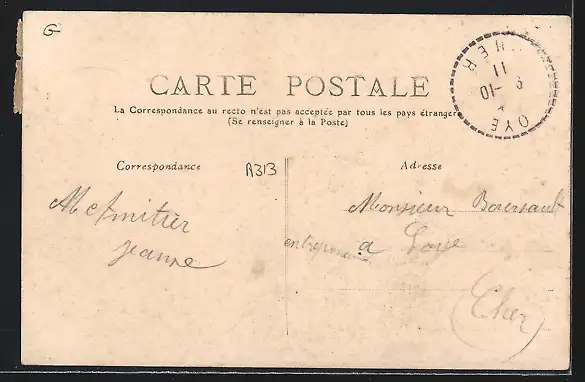 G
CARTE POSTALE
La Correspondance au recto n'est pas acceptée par tous les pays étrangers
(Se renseigner à la Poste)
OYE
HER
11
9 -10
Correspondance
A313
Adresse
Mes Amitiés
Jeanne
Monsieur
a Loye
(Cher)